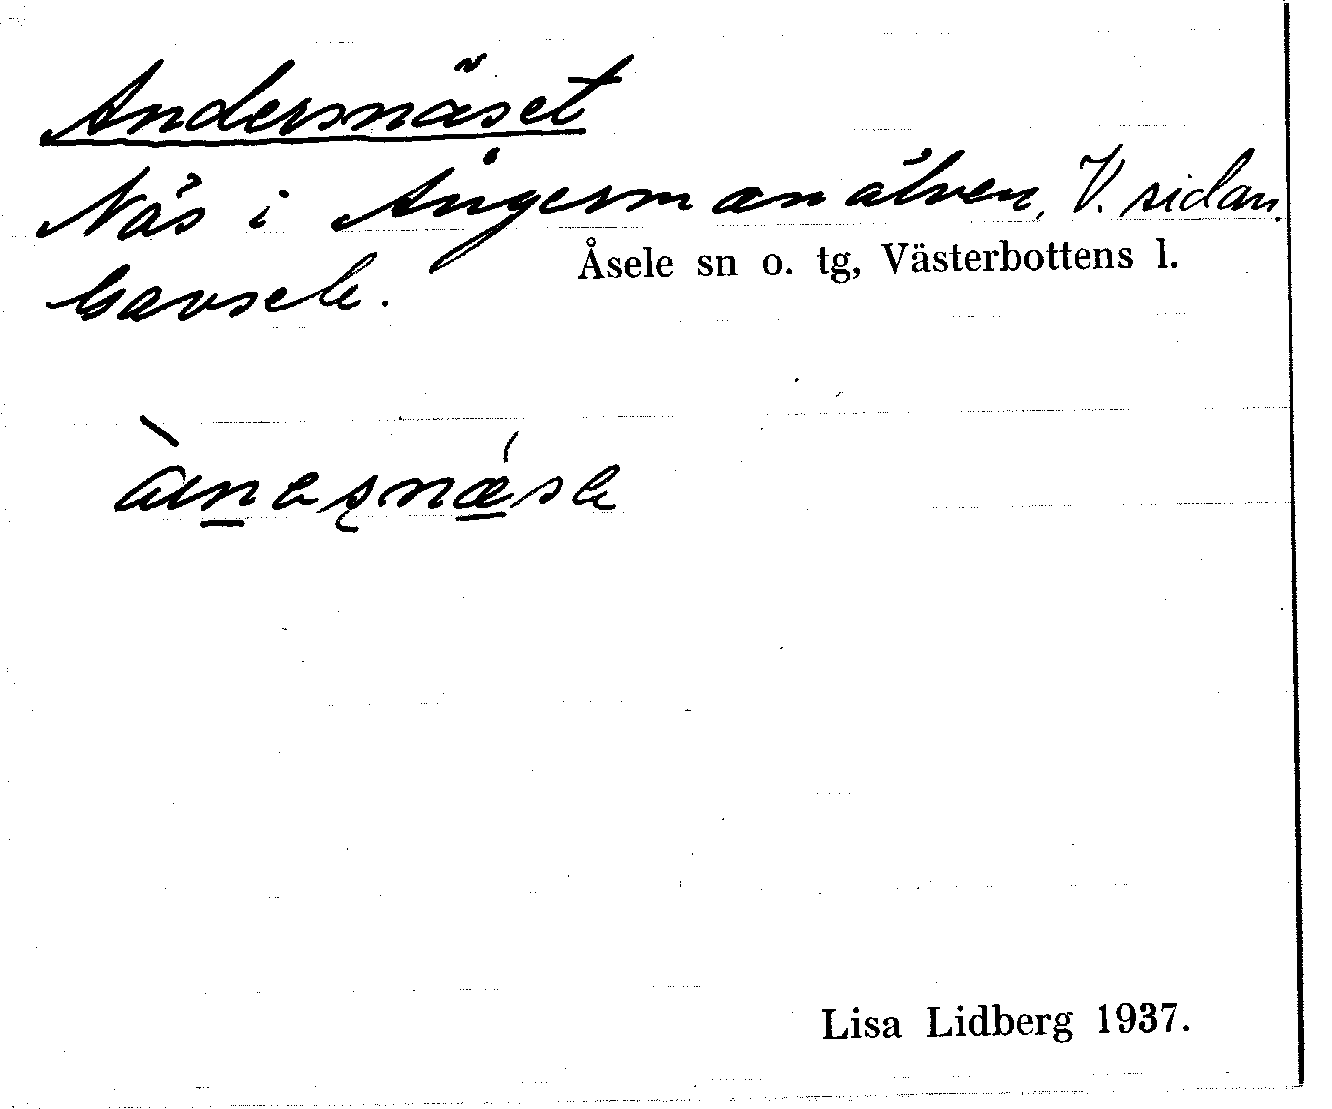 Andersnäset
Näs i Ångermanälven, V. sidan.
Åsele sn o. tg, Västerbottens l.
Gavsele.
Lisa Lidberg 1937.